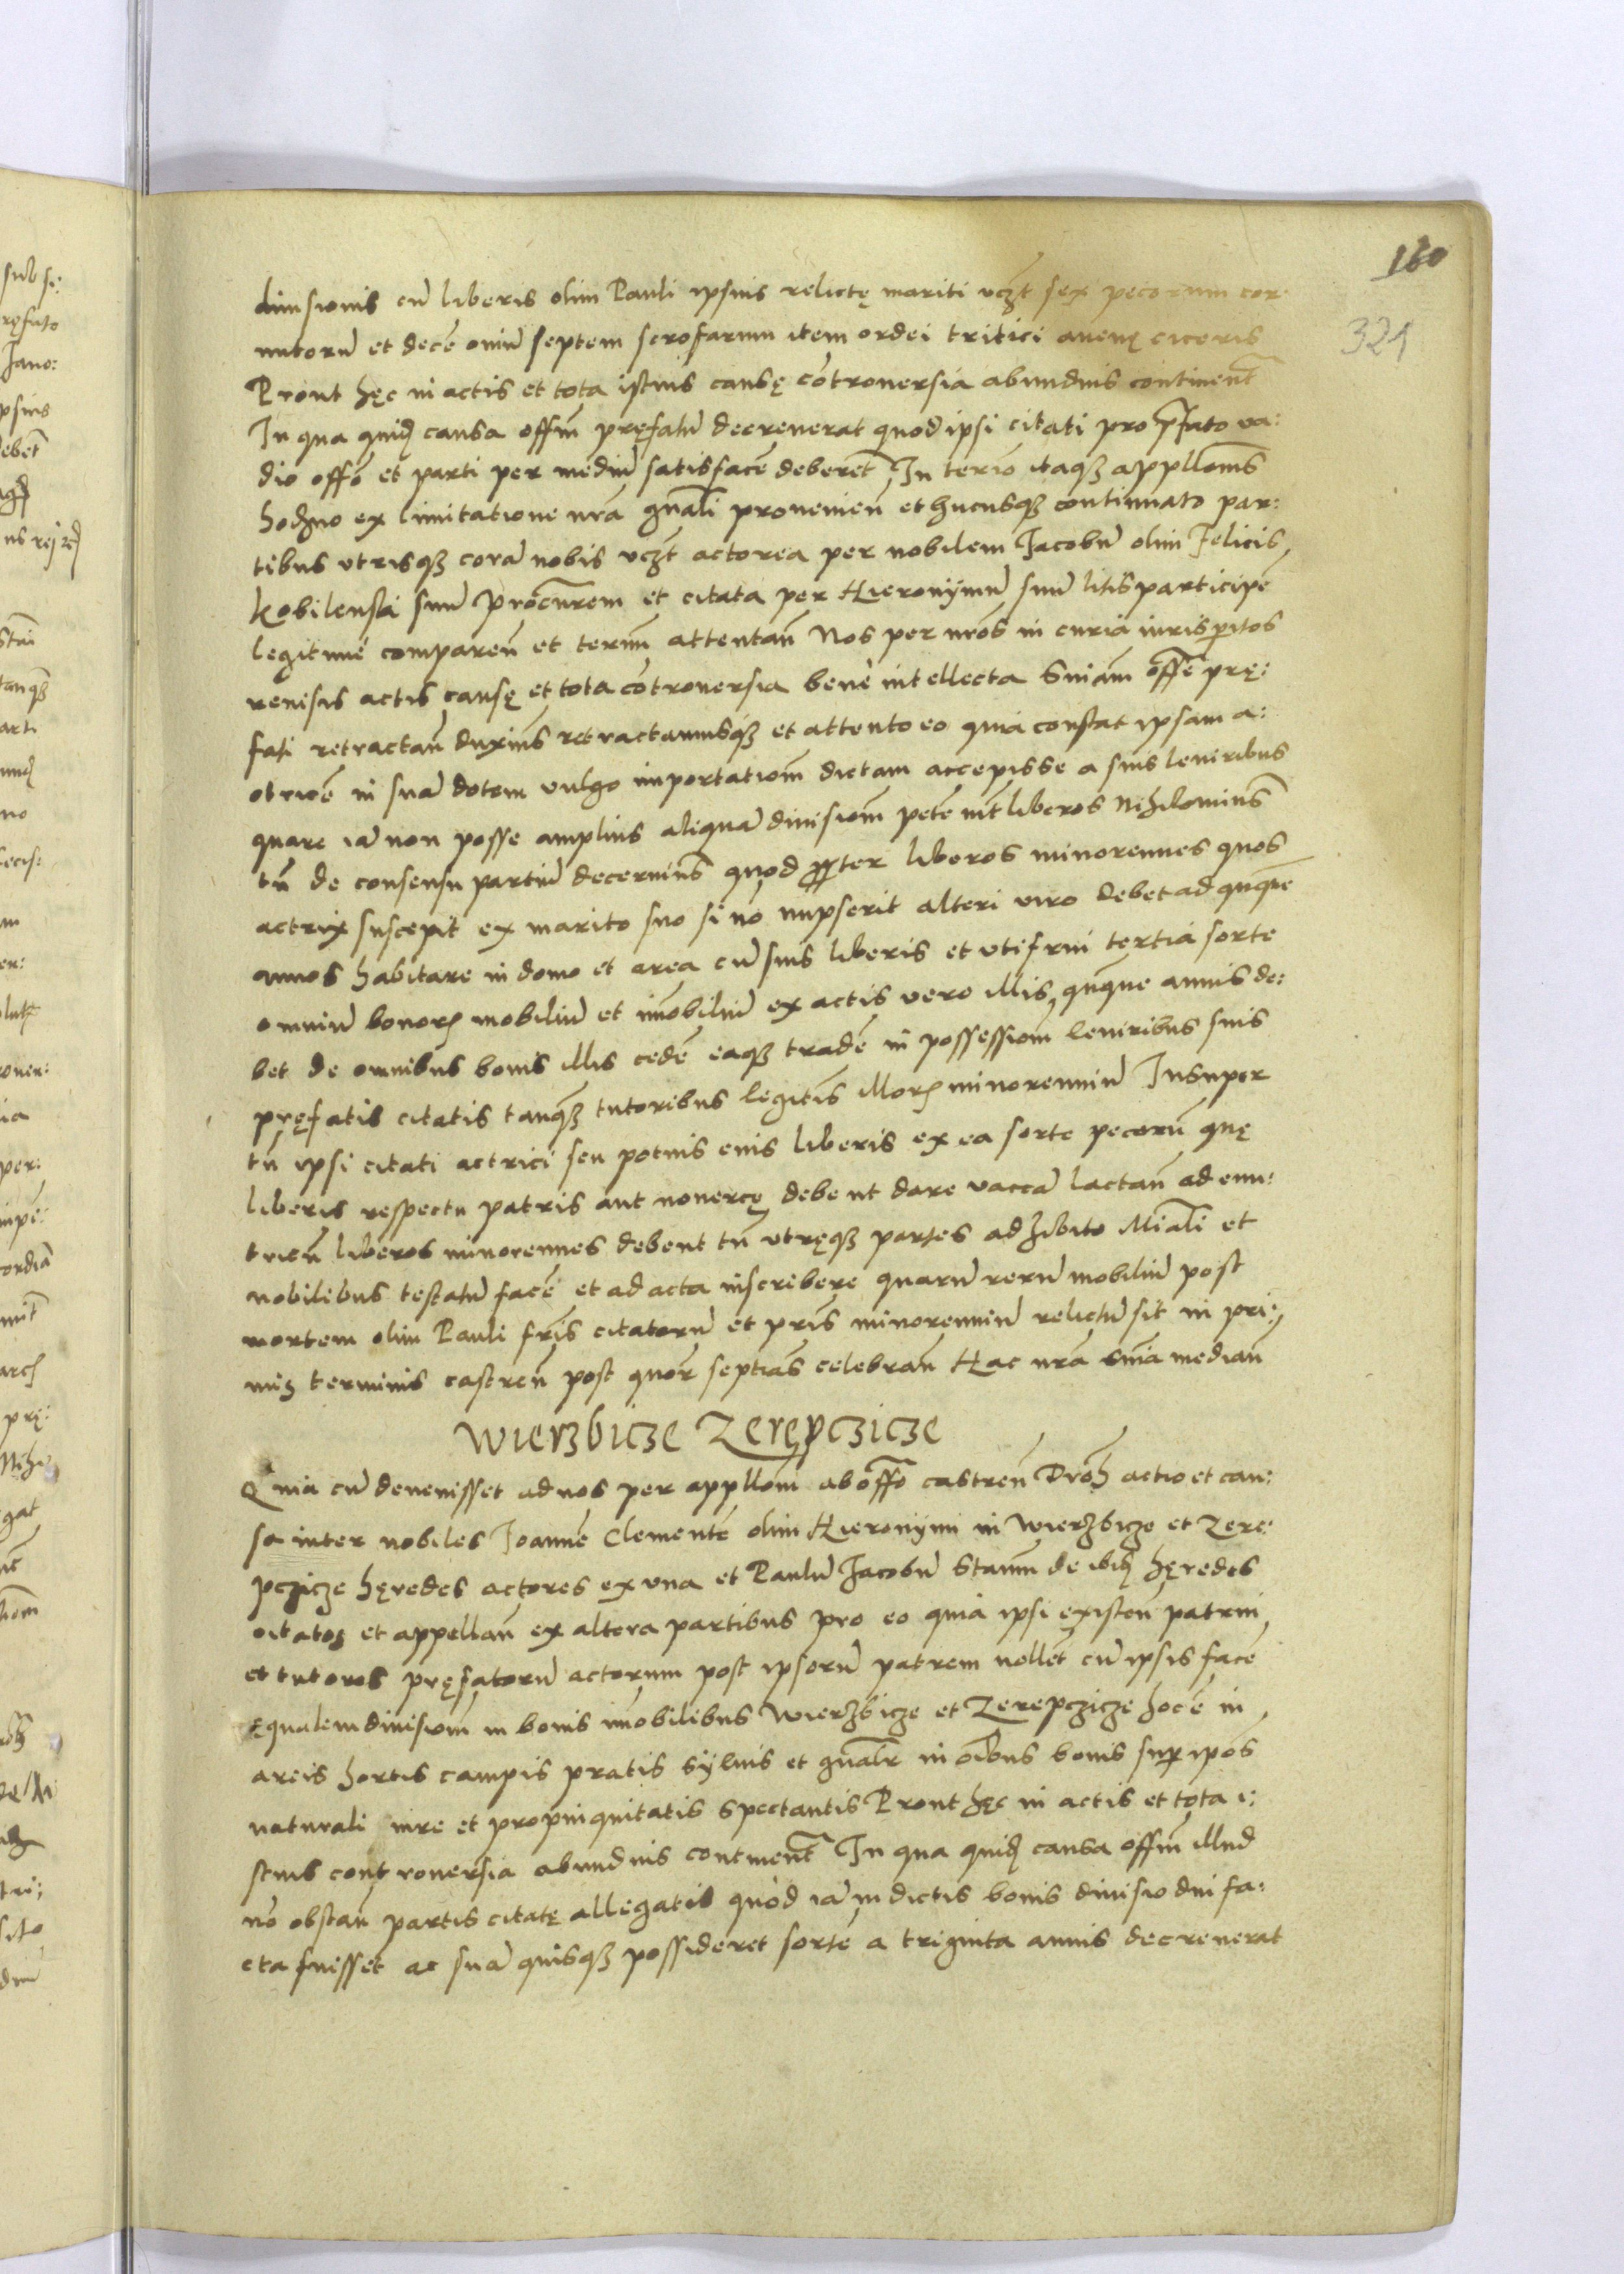 160
321
diuisionis cū liberis olim Pauli ipsius relictę mariti vczt sex pecorum cor:
nutorū et decē ouiū septem scrofarum item ordei tritici auenę ciceris
Prout hęc in actis et tota istius causę cōtrouersia abundius continent
In qua quidē causa offm̄ pręfatū decreuerat quod ipsi citati pro p̄fato va:
dio offō et parti per mediū satisfacē deberēt In termō itaqȝ appllonis
hodierno ex limitatione nrā gnāli prouenieñ et hucusqȝ continuato par:
tibus vtrisqȝ corā nobis vczt actorea per nobilem Jacobū olim Felicis
Kobilenski suū procūrem et citata per Hieronÿmū suū litis participē
legitimè compareñ et termm̄ attentañ Nos per nrōs in curia iurisperitos
reuisis actis causę et tota cōtrouersia bene intellecta Snīam offī prę:
fati retractañ duximꝰ retractamusqȝ et attento eo quia constat ipsam a:
ctricē in suā dotem vulgo importatiom̄ dictam accepisse a suis leuiribus
quare iā non posse amplius aliquā diuisiom̄ petē int̄ liberos Nihilominus
tn̄ de consensu partiū decernimꝰ quod propter liberos minorennes quos
actrix suscepit ex marito suo si nō nupserit alteri viro debet ad quinque
annos habitare in domo et area cū suis liberis et vti frui tertia sorte
omniū bonorꝝ mobiliū et im̄obiliū exactis vero illis quinque annis de:
bet de omnibus bonis illis cedē eaqȝ tradē in possessiom̄ leuiribus suis
pręfatis citatis tanqȝ tutoribus legitīs illorꝝ minorenniū Insuper
tn̄ ipsi citati actrici seu potius eius liberis ex ea sorte pecorū quę
liberis respectu patris aut nouercę debent dare vaccā lactañ ad enu:
trieñ liberos minorennes debent tn̄ vtręqȝ partes adhibito Miāli et
nobilibus testatū facē et ad acta inscribere quarū rerū mobiliū post
mortem olim Pauli fr̄is citatorū et pr̄is minorenniū relictū sit in pri:
mis terminis castreñ post quor septiās celebrañ Hac nrā snīa mediañ
Wierzbicze Zerępczicze
Quia cū deuenisset ad nos per appllom̄ ab offō castreñ Droh actio et cau:
sa inter nobiles Joannē Clementē olim Hieronÿmi in Wierzbicze et Zere:
pczicze hęredes actores ex vna et Paulū Jacobū Stanm̄ de ibidē hęredes
citatos et appellañ ex altera partibus pro eo quia ipsi existeñ patrui
et tutores pręfatorū actorum post ipsorū patrem nollēt cū ipsis facē
ęqualem diuisiom̄ in bonis im̄obilibus Wierzbicze et Zerepczicze hoc ē in
areis hortis campis pratis sÿluis et gnālr in oībus bonis super ipōs
naturali iure et propinquitatis spectantis Prout hęc in actis et tota i:
stius controuersia abundius continent̄ In qua quidē causa offm̄ illud
nō obstañ partis citatę allegatis quod iā in dictis bonis diuisio diu fa:
cta fuisset ac suā quisqȝ possideret sortē a triginta annis decreuerat